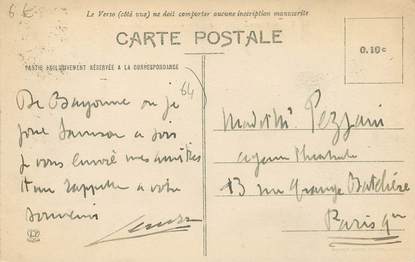 6 €
Le Verso (côté vue) ne doit comporter aucune inscription manuscrite
CARTE POSTALE
0.10c
PARTIE EXCLUSIVEMENT RÉSERVÉE A LA CORRESPONDANCE
64
De Bayonne ou je
joue Samson a
je vous envoie mes amitiés
me rappelle a votre
souvenir
Pezzani
13 rue Grange Batelière
Paris 9me